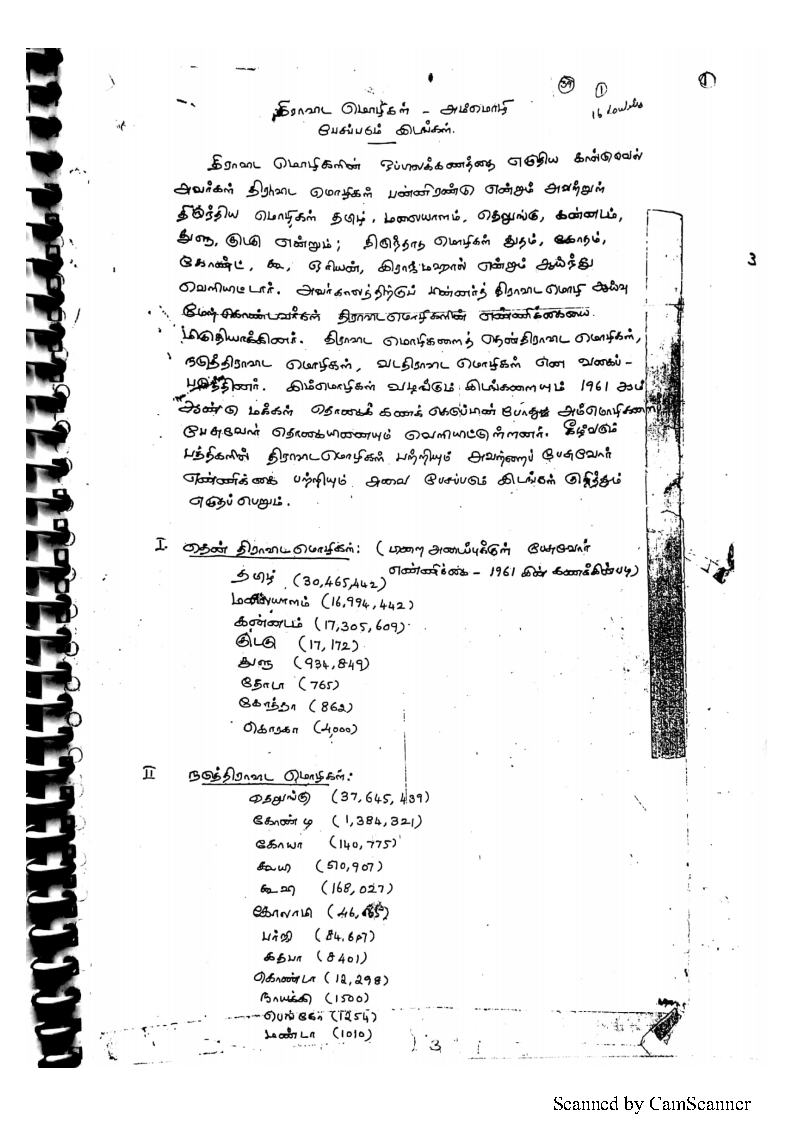 39 1 1
16 double
திராவிட மொழிகள் - அம்மொழி
பேசப்படும் இடங்கள்.
திராவிட மொழிகளின் ஒப்பிலக்கணத்தை எழுதிய கால்டுவெல்
அவர்கள் திராவிட மொழிகள் பன்னிரண்டு என்றும் அவற்றுள்
திருந்திய மொழிகள் தமிழ், மலையாளம், தெலுங்கு, கன்னடம்,
துளு, குடகு என்றும்; திருந்தாத மொழிகள் துதம், கோதம்,
கோண்ட், கூ, ஓரியன், இராஜ்மஹால் என்றும் ஆய்ந்து
வெளியிட்டார். அவர்காலத்திற்குப் பின்னர்த் திராவிட மொழி ஆய்வு
மேற்கொண்டவர்கள் திராவிடமொழிகளின் எண்ணிக்கையை
மிகுதியாக்கினர். திராவிட மொழிகளைத் தென்திராவிட மொழிகள்,
நடுத்திராவிட மொழிகள், வடதிராவிட மொழிகள் என வகைப்-
படுத்தினர். இம்மொழிகள் வழங்கும் இடங்களையும் 1961 ஆம்
ஆண்டு மக்கள் தொகைக் கணக்கெடுப்பின் போது அம்மொழிகளை
பேசுவோர் தொகையினையும் வெளியிட்டுள்ளனர். கீழ்வரும்
பத்திகளின் திராவிடமொழிகள் பற்றியும் அவற்றைப் பேசுவோர்
எண்ணிக்கை பற்றியும் அவை பேசப்படும் இடங்கள் குறித்தும்
எழுதப் பெறும்.
3
I. தென் திராவிட மொழிகள்: ( அடைப்புக்குள் பேசுவோர்
எண்ணிக்கை - 1961 இன் கணக்கின்படி)
தமிழ் (30,465,442)
மலையாளம் (16,994,442)
கன்னடம் (17,305,609)
குடகு (17,172)
துளு (934,849)
தோடா (765)
கோத்தா (862)
கொரகா (4000)
II நடுத்திராவிட மொழிகள்:
தெலுங்கு (37,645,439)
கோண்டி (1,384,321)
கோயா (140,775)
கூயி (510,907)
கூவி (168,027)
கோலாமி
பர்ஜி
கதபா (8401)
கொண்டா (12,298)
நாயக்கி (1500)
பெங்கோ (1254)
மண்டா (1010)
3
Scanned by CamScanner